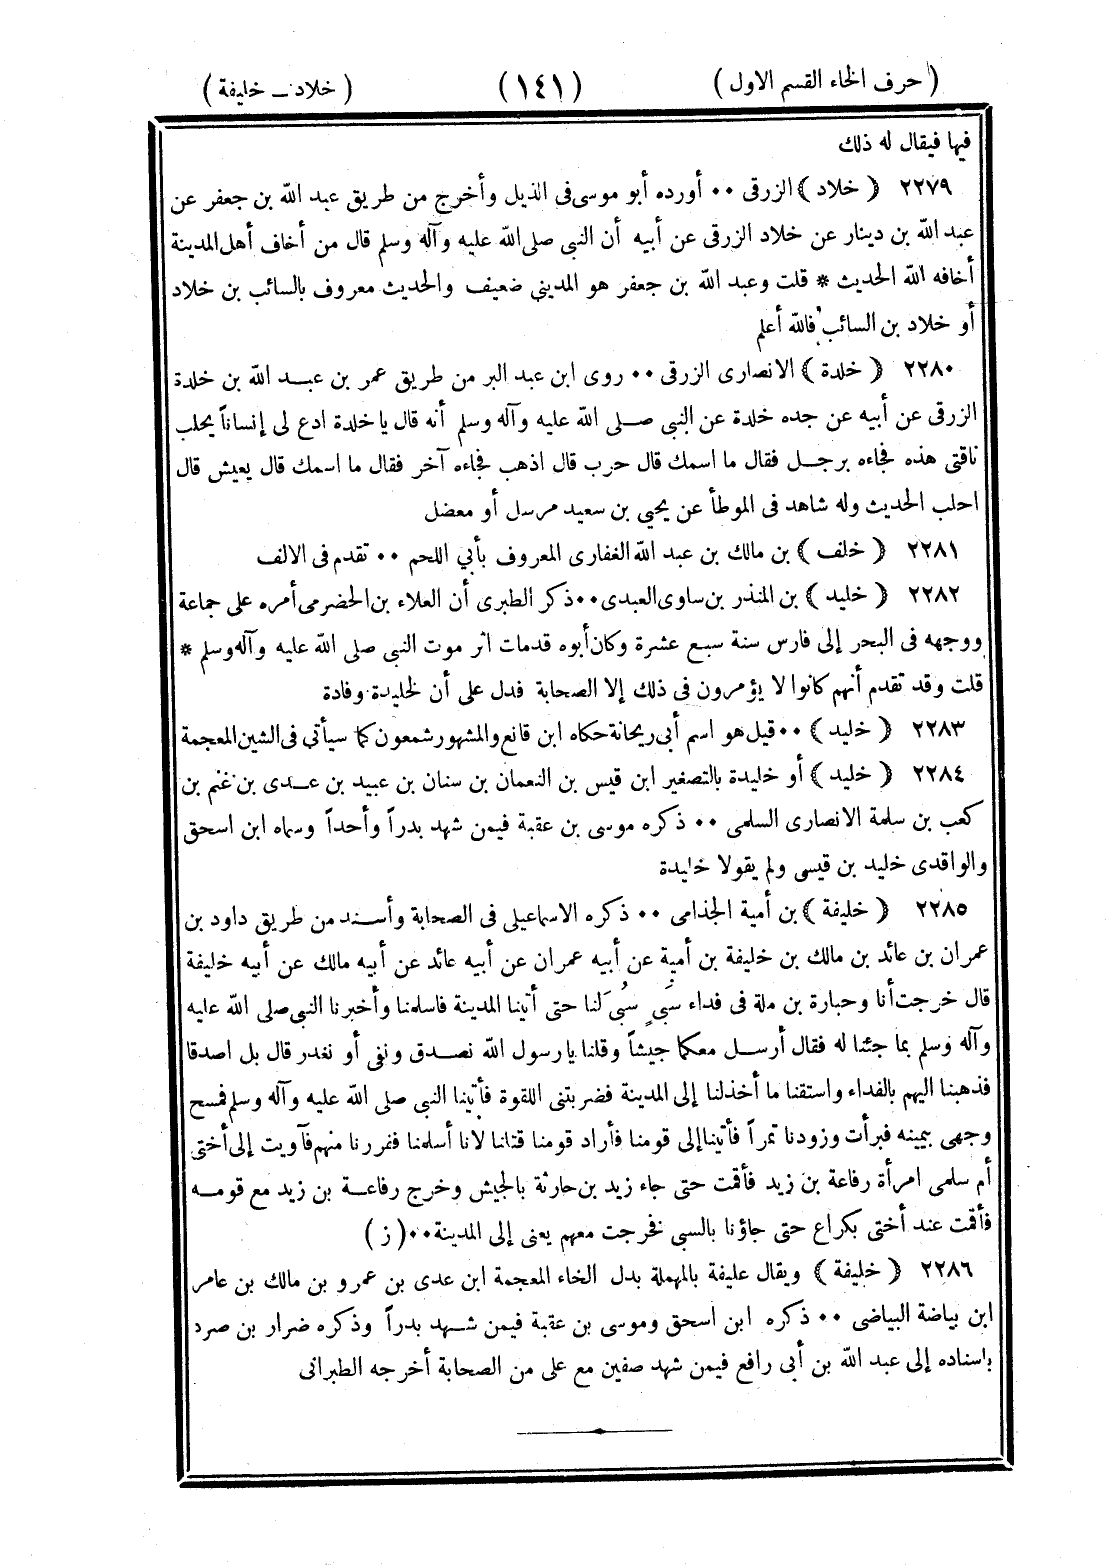 ( حرف الخاء القسم الاول ) (١٤١) ( خلاد ـ خليفة )
فيها فيقال له ذلك
٢٢٧٩ ﴿ خلاد ﴾ الزرقى ٠٠ أورده أبو موسى فى الذيل وأخرج من طريق عبد الله بن جعفر عن
عبد الله بن دينار عن خلاد الزرقى عن أبيه أن النبي صلى الله عليه وآله وسلم قال من أخاف أهل المدينة
أخافه الله الحديث * قلت وعبد الله بن جعفر هو المدينى ضعيف والحديث معروف بالسائب بن خلاد
أو خلاد بن السائب فالله أعلم
٢٢٨٠ ﴿ خلدة ﴾ الانصارى الزرقى ٠٠ روى ابن عبد البر من طريق عمر بن عبد الله بن خلدة
الزرقى عن أبيه عن جده خلدة عن النبي صلى الله عليه وآله وسلم أنه قال يا خلدة ادع لى إنساناً يحلب
ناقتى هذه فجاءه برجل فقال ما اسمك قال حرب قال اذهب فجاءه آخر فقال ما اسمك قال يعيش قال
احلب الحديث وله شاهد فى الموطأ عن يحيى بن سعيد مرسل أو معضل
٢٢٨١ ﴿ خلف ﴾ بن مالك بن عبد الله الغفارى المعروف بأبي اللحم ٠٠ تقدم فى الالف
٢٢٨٢ ﴿ خليد ﴾ بن المنذر بن ساوى العبدى ٠٠ ذكر الطبرى أن العلاء بن الحضرمى أمره على جماعة
ووجهه فى البحر إلى فارس سنة سبع عشرة وكان أبوه قدمات اثر موت النبي صلى الله عليه وآله وسلم *
قلت وقد تقدم أنهم كانوا لا يؤمرون فى ذلك إلا الصحابة فدل على أن لخليدة وفادة
٢٢٨٣ ﴿ خليد ﴾ ٠٠ قيل هو اسم أبى ريحانة حكاه ابن قانع والمشهور شمعون كما سيأتي فى الشين المعجمة
٢٢٨٤ ﴿ خليد ﴾ أو خليدة بالتصغير ابن قيس بن النعمان بن سنان بن عبيد بن عدى بن غنم بن
كعب بن سلمة الانصارى السلمى ٠٠ ذكره موسى بن عقبة فيمن شهد بدراً وأحداً وسماه ابن اسحق
والواقدى خليد بن قيس ولم يقولا خليدة
٢٢٨٥ ﴿ خليفة ﴾ بن أمية الجذامى ٠٠ ذكره الاسماعيلى فى الصحابة وأسند من طريق داود بن
عمران بن عائد بن مالك بن خليفة بن أمية عن أبيه عمران عن أبيه عائد عن أبيه مالك عن أبيه خليفة
قال خرجت أنا وحبارة بن ملة فى فداء سَبَيٍ سُبِىَ لنا حتى أتينا المدينة فاسلمنا وأخبرنا النبى صلى الله عليه
وآله وسلم بما جئنا له فقال أرسل معكما جيشاً وقلنا يا رسول الله نصدق ونفى أو نغدر قال بل اصدقا
فذهبنا اليهم بالفداء واستقنا ما أخذلنا إلى المدينة فضربتنى اللقوة فأتينا النبي صلى الله عليه وآله وسلم فمسح
وجهى بيمينه فبرأت وزودنا تمراً فأتينا إلى قومنا فأراد قومنا قتانا لانا أسلمنا ففررنا منهم فآويت إلى أختى
أم سلمى امرأة رفاعة بن زيد فأقمت حتى جاء زيد بن حارثة بالجيش وخرج رفاعة بن زيد مع قومه
فأقمت عند أختى بكراع حتى جاؤنا بالسبى فخرجت معهم يعنى إلى المدينة ٠٠ ( ز )
٢٢٨٦ ﴿ خليفة ﴾ ويقال عليفة بالمهملة بدل الخاء المعجمة ابن عدى بن عمرو بن مالك بن عامر
ابن بياضة البياضى ٠٠ ذكره ابن اسحق وموسى بن عقبة فيمن شهد بدراً وذكره ضرار بن صرد
باسناده إلى عبد الله بن أبى رافع فيمن شهد صفين مع على من الصحابة أخرجه الطبرانى